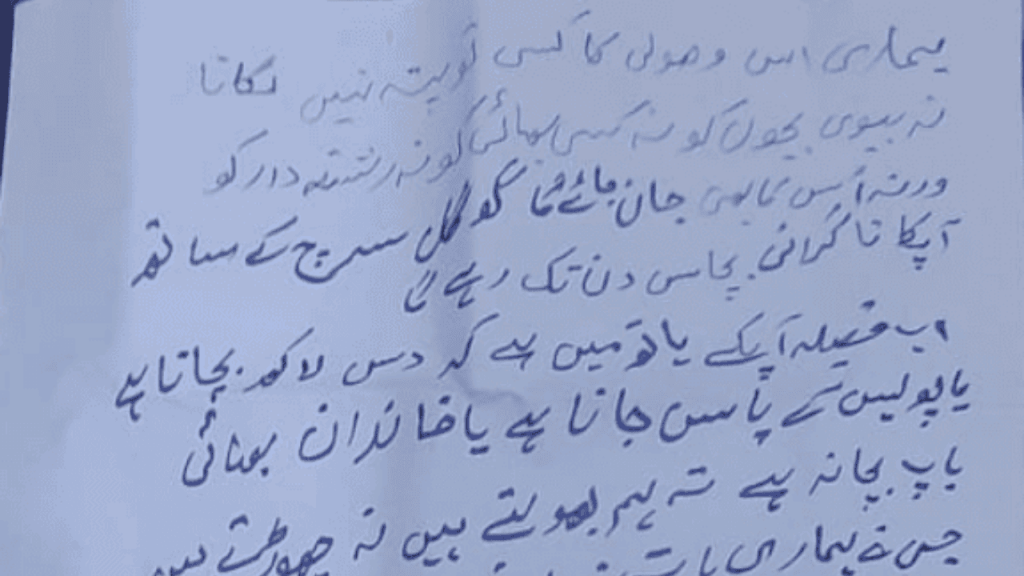 ہماری اس وصولی کا کسی کو پتہ نہیں لگانا
نہ بیوی بچوں کو نہ کسی بھائی کو نہ رشتہ دار کو
ورنہ اس کا بھی جان جائے گا گوگل سرچ کے ساتھ
آپکا نگرانی پچاس دن تک رہے گی
اب فیصلہ آپکے ہاتھ میں ہے کہ دس لاکھ بچانا ہے
یا پولیس کے پاس جانا ہے یا خاندان بھائی
باپ بچانہ ہے نہ ہم بھولتے ہیں نہ چھوڑتے ہیں
جس نے ہماری بات